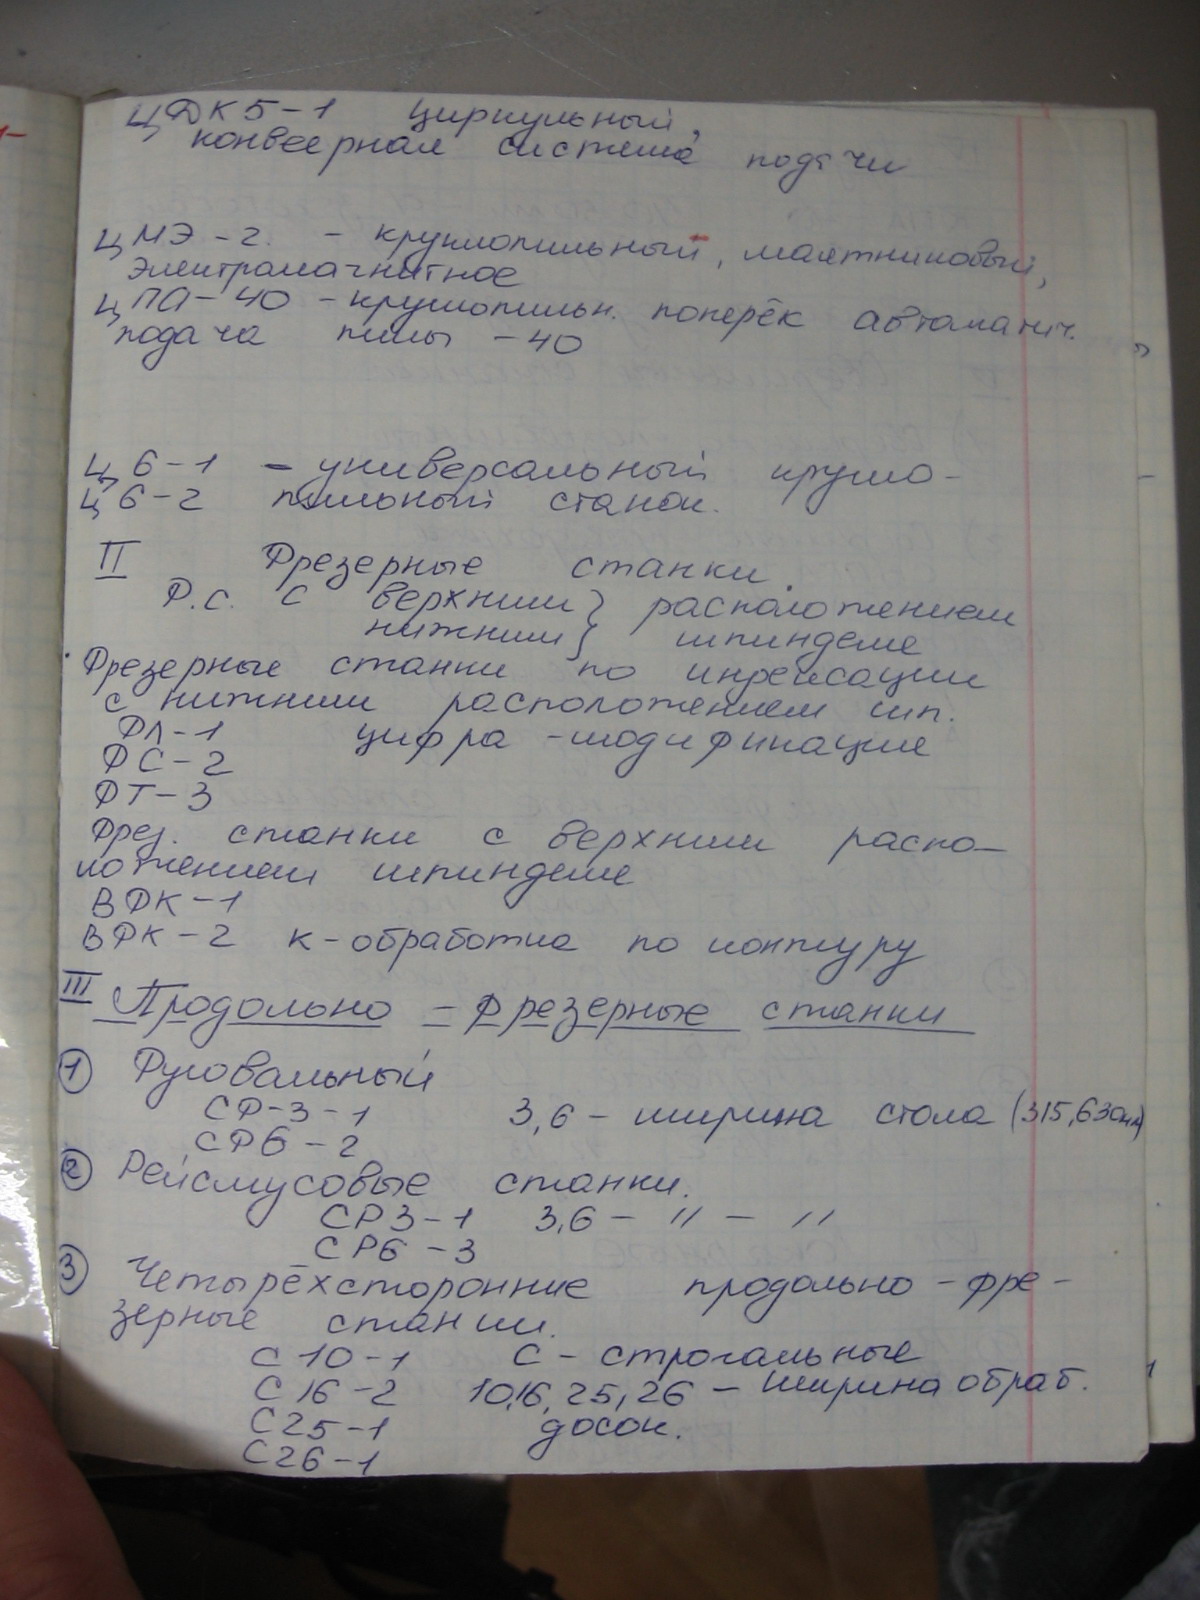 ЦДК5-1 циркульный,
конвеерная система подачи
ЦМЭ-2. - круглопильный, маятниковый,
электромагнитное
ЦПА-40 - круглопильн. поперёк автоматич.
подача пилы -40
Ц6-1 - универсальный кругло-
Ц6-2 пильный станок.
II Фрезерные станки.
Ф.с. с верхним } расположением
нижним } шпинделя
Фрезерные станки по индексации
с нижним расположением шп.
ФЛ-1 цифра - модификация
ФС-2
ФТ-3
Фрез. станки с верхним распо-
ложением шпинделя
ВФК-1
ВФК-2 к-обработка по контуру
III Продольно - фрезерные станки
1 Фуговальный
СФ-3-1 3,6 - ширина стола (315,630мм)
СФ6-2
2 Рейсмусовые станки.
СР3-1 3,6 - // - //
СР6-3
3 Четырёхсторонние продольно-фре-
зерные станки.
С10-1 С - строгальные
С16-2 10,16,25,26 - ширина обраб.
С25-1 досок.
С26-1